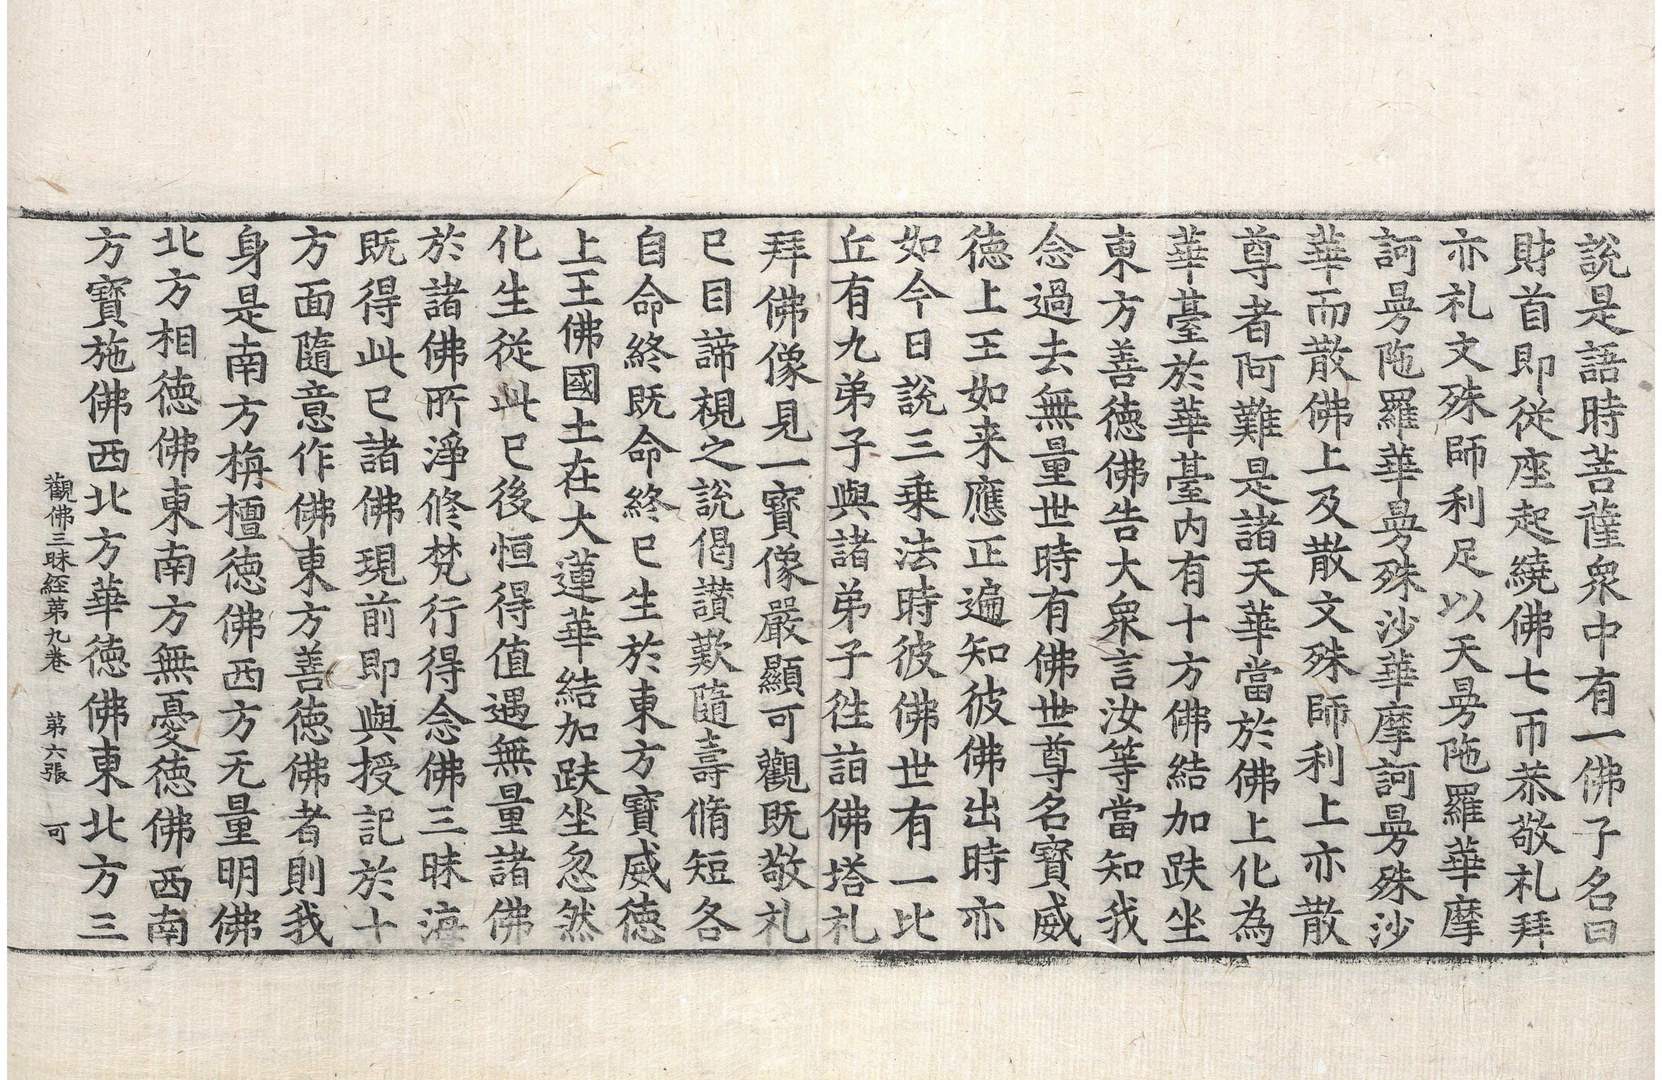 說是語時菩薩衆中有一佛子名曰
財首即從座起繞佛七帀恭敬礼拜
亦礼文殊師利足以天曼陁羅華摩
訶曼陁羅華曼殊沙華摩訶曼殊沙
華而散佛上及散文殊師利上亦散
尊者阿難是諸天華當於佛上化為
華臺於華臺內有十方佛結加趺坐
東方善徳佛告大衆言汝等當知我
念過去無量世時有佛世尊名寳威
徳上王如来應正遍知彼佛出時亦
如今日說三乗法時彼佛世有一比
丘有九弟子與諸弟子徃詣佛塔礼
拜佛像見一寳像嚴顯可觀既敬礼
已目諦視之說偈讃歎隨壽脩短各
自命終既命終已生於東方寳威徳
上王佛國土在大蓮華結加趺坐忽然
化生從此已後恒得值遇無量諸佛
於諸佛所淨修梵行得念佛三昧海
既得此已諸佛現前即與授記於十
方面隨意作佛東方善徳佛者則我
身是南方栴檀徳佛西方无量明佛
北方相徳佛東南方無憂徳佛西南
方寶施佛西北方華徳佛東北方三
觀佛三昧經第九卷 第六張 可